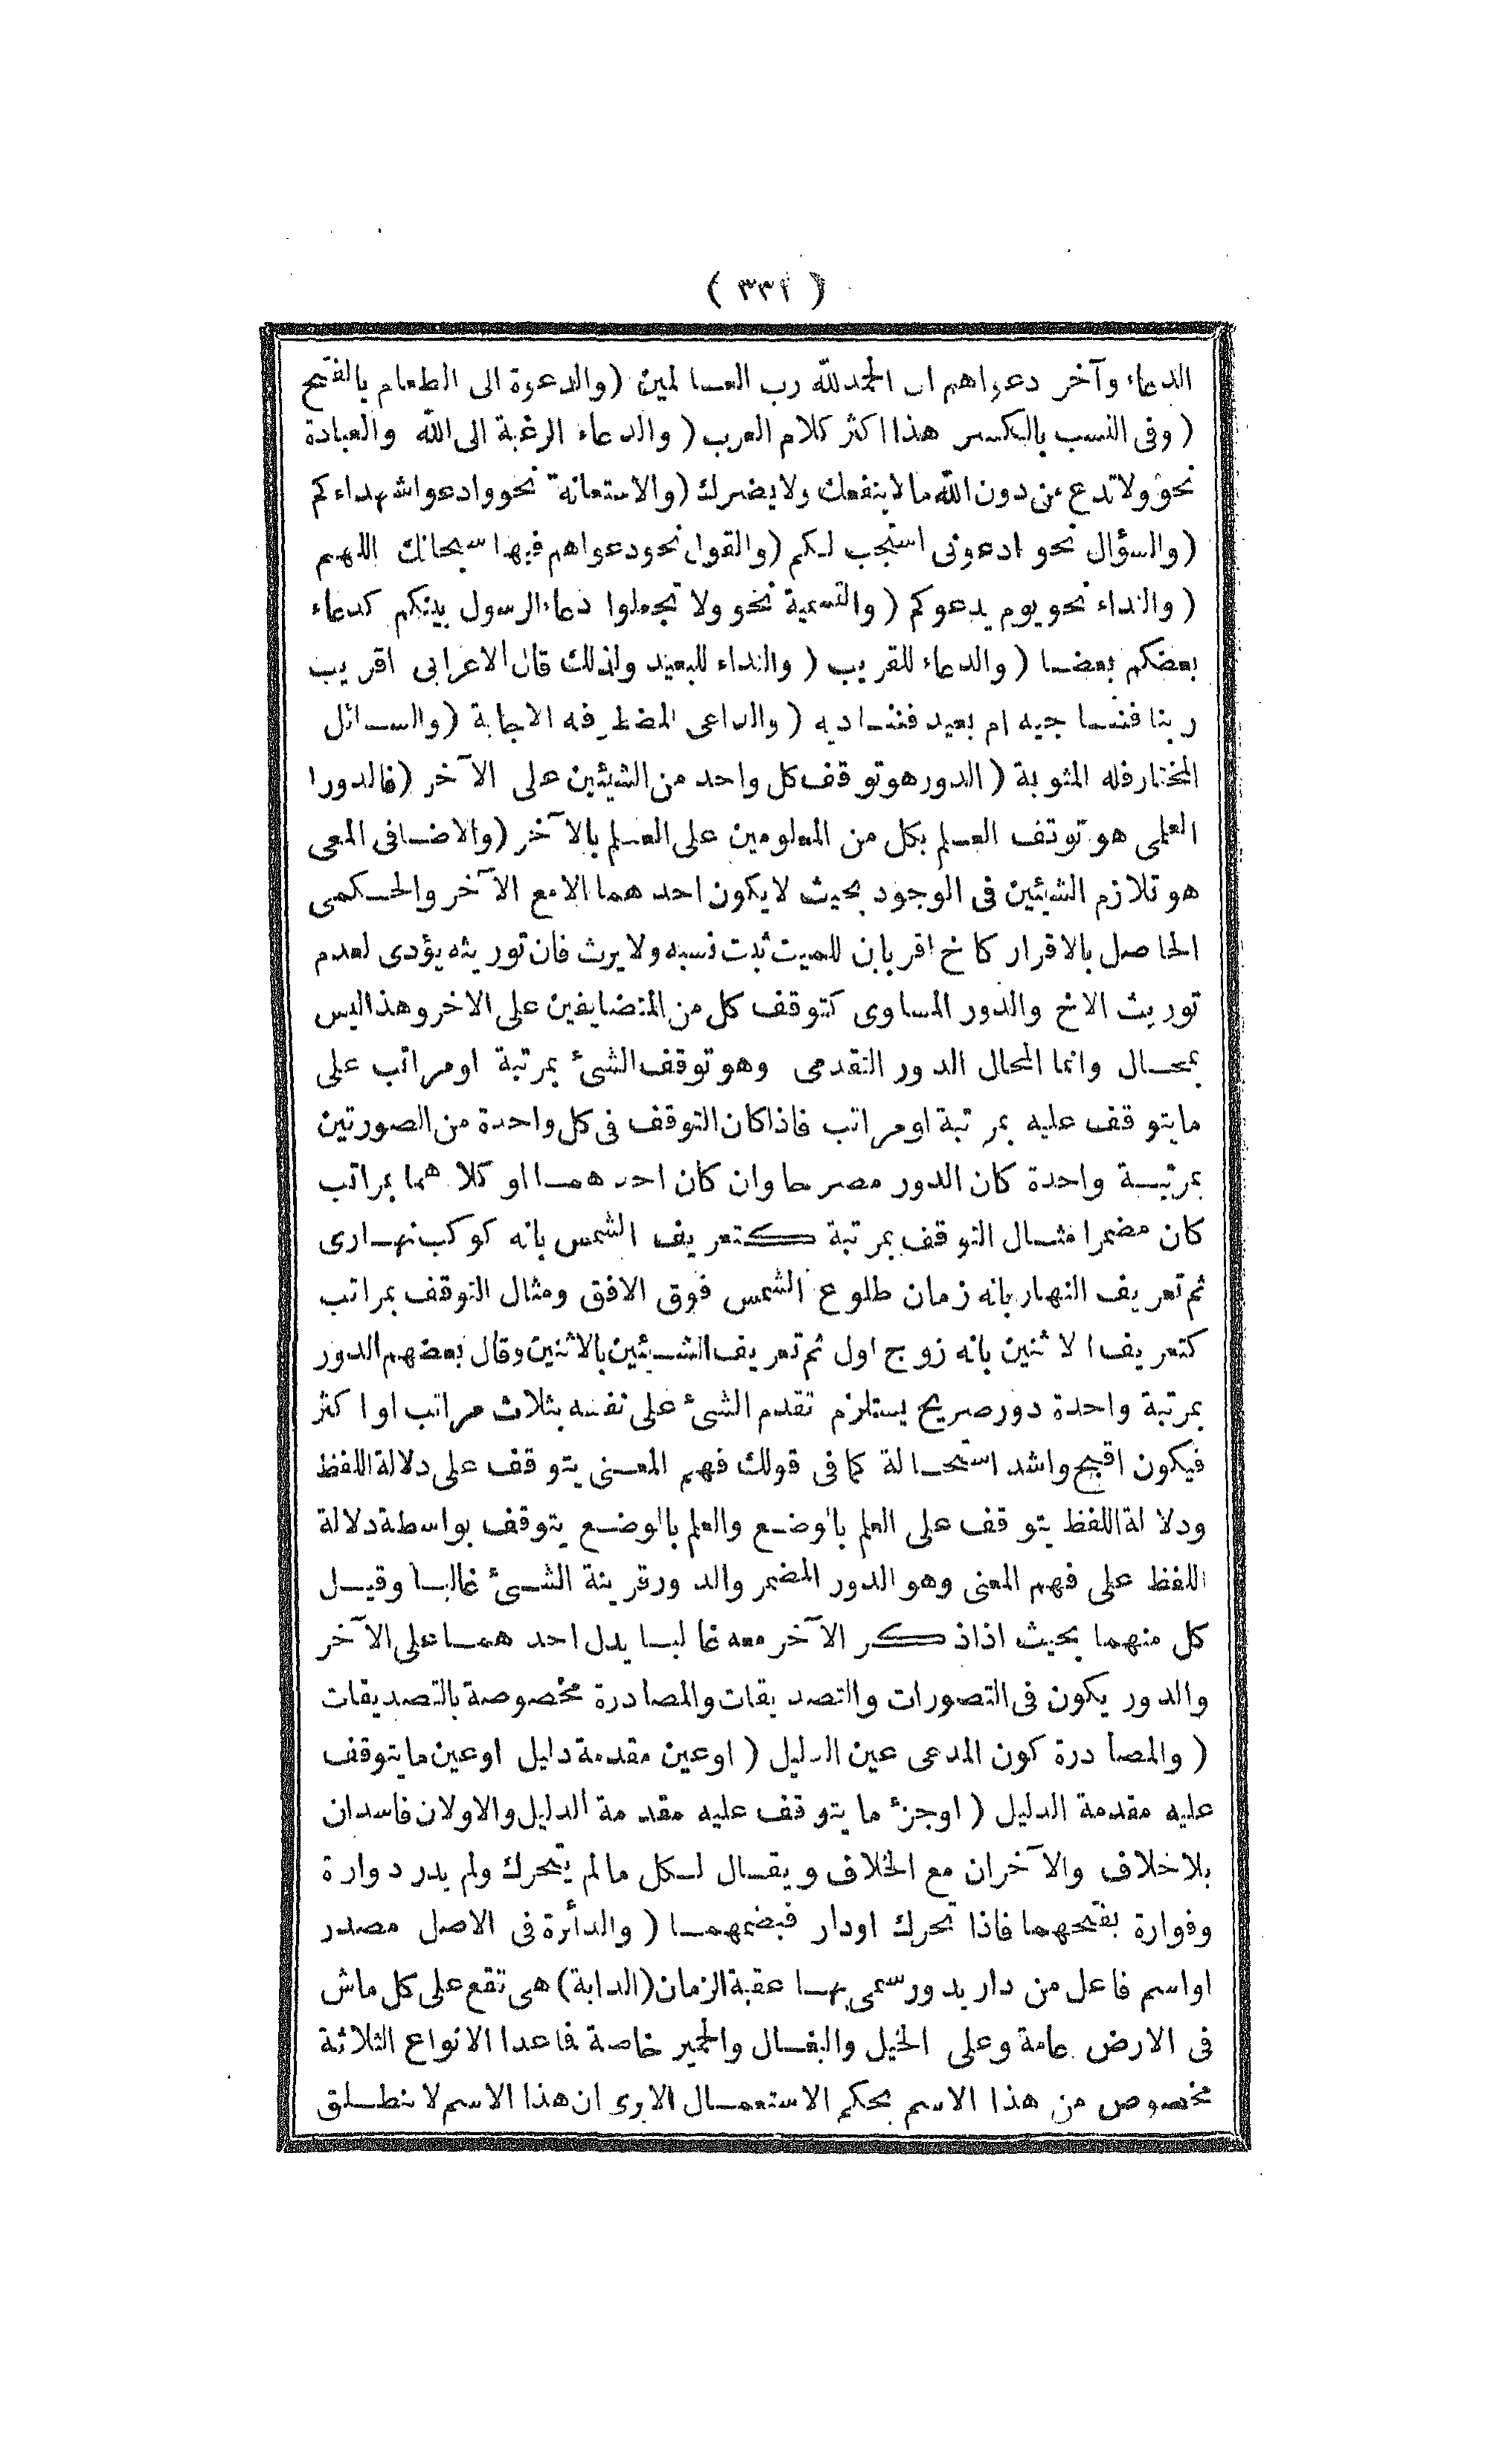 ( ٣٣٢ )
الدعاء وآخر دعواهم ان الحمد لله رب العالمين (والدعوة الى الطعام بالفتح
( وفى النسب بالكسر هذا اكثر كلام العرب ( والدعاء الرغبة الى الله والعبادة
نحو ولا تدع من دون الله ما لا ينفعك ولا يضرك (والاستعانة نحو وادعوا شهداءكم
(والسؤال نحو ادعونى استجب لكم (والقول نحو دعواهم فيها سبحانك اللهم
( والنداء نحو يوم يدعوكم ( والتسمية نحو ولا تجعلوا دعاء الرسول بينكم كدعاء
بعضكم بعضا ( والدعاء للقريب ( والنداء للبعيد ولذلك قال الاعرابى اقريب
ربنا فنناجيه ام بعيد فنناديه ( والداعى المضطر فله الاجابة (والسائل
المختار فله المثوبة ( الدور هو توقف كل واحد من الشيئين على الآخر (فالدور
العلمى هو توقف العلم بكل من المعلومين على العلم بالآخر (والاضافى المعى
هو تلازم الشيئين فى الوجود بحيث لا يكون احدهما الا مع الآخر والحكمى
الحاصل بالاقرار كاخ اقر بابن للميت ثبت نسبه ولا يرث فان توريثه يؤدى لعدم
توريث الاخ والدور المساوى كتوقف كل من المتضايفين على الاخر وهذا ليس
بمحال وانما المحال الدور التقدمى وهو توقف الشئ بمرتبة او مراتب على
ما يتوقف عليه بمرتبة او مراتب فاذا كان التوقف فى كل واحدة من الصورتين
بمرتبة واحدة كان الدور مصرحا وان كان احدهما او كلاهما بمراتب
كان مضمرا مثال التوقف بمرتبة كتعريف الشمس بانه كوكب نهارى
ثم تعريف النهار بانه زمان طلوع الشمس فوق الافق ومثال التوقف بمراتب
كتعريف الاثنين بانه زوج اول ثم تعريف الشيئين بالاثنين وقال بعضهم الدور
بمرتبة واحدة دور صريح يستلزم تقدم الشئ على نفسه بثلاث مراتب او اكثر
فيكون اقبح واشد استحالة كما فى قولك فهم المعنى يتوقف على دلالة اللفظ
ودلالة اللفظ يتوقف على العلم بالوضع والعلم بالوضع يتوقف بواسطة دلالة
اللفظ على فهم المعنى وهو الدور المضمر والدور قرينة الشئ غالبا وقيل
كل منهما بحيث اذا ذكر الآخر معه غالبا يدل احدهما على الآخر
والدور يكون فى التصورات والتصديقات والمصادرة مخصوصة بالتصديقات
( والمصادرة كون المدعى عين الدليل ( او عين مقدمة دليل او عين ما يتوقف
عليه مقدمة الدليل ( او جزء ما يتوقف عليه مقدمة الدليل والاولان فاسدان
بلا خلاف والآخران مع الخلاف ويقال لكل ما لم يتحرك ولم يدر دوارة
وفوارة بفتحهما فاذا تحرك او دار فبضمهما ( والدائرة فى الاصل مصدر
او اسم فاعل من دار يدور سمى بها عقبة الزمان (الدابة) هى تقع على كل ماش
فى الارض عامة وعلى الخيل والبغال والحمير خاصة فاعدا الانواع الثلاثة
مخصوص من هذا الاسم بحكم الاستعمال الا يرى ان هذا الاسم لا ينطلق